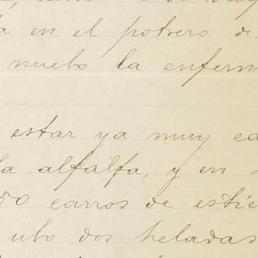 en el potrero de
nuebo la enferm
estar ya muy ca
la alfalfa, y en
50 carros de estie
ubo dos heladas